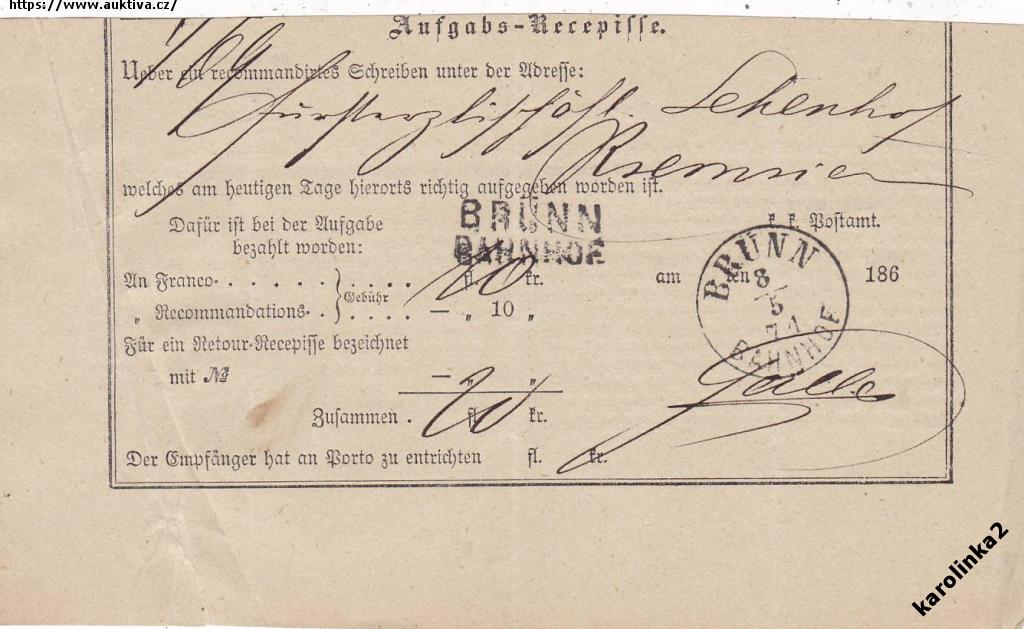 https://www.auktiva.cz/
Aufgabs-Recepisse.
Ueber ein recommandirtes Schreiben unter der Adresse:
fürsterzbischöfl. Lehenhof
Kremsier
welches am heutigen Tage hierorts richtig aufgegeben worden ist.
Dafür ist bei der Aufgabe
bezahlt worden:
BRÜNN
BAHNHOF
k. k. Postamt.
An Franco . . . . . . . . . . fl. 10 kr.
„ Recommandations . . . . . . — „ 10 „
Gebühr
am ten 186
BRÜNN
8/5
71
BAHNHOF
Für ein Retour-Recepisse bezeichnet
mit № — „ „
Zusammen . fl. 20 kr.
Der Empfänger hat an Porto zu entrichten fl. kr.
karolinka2